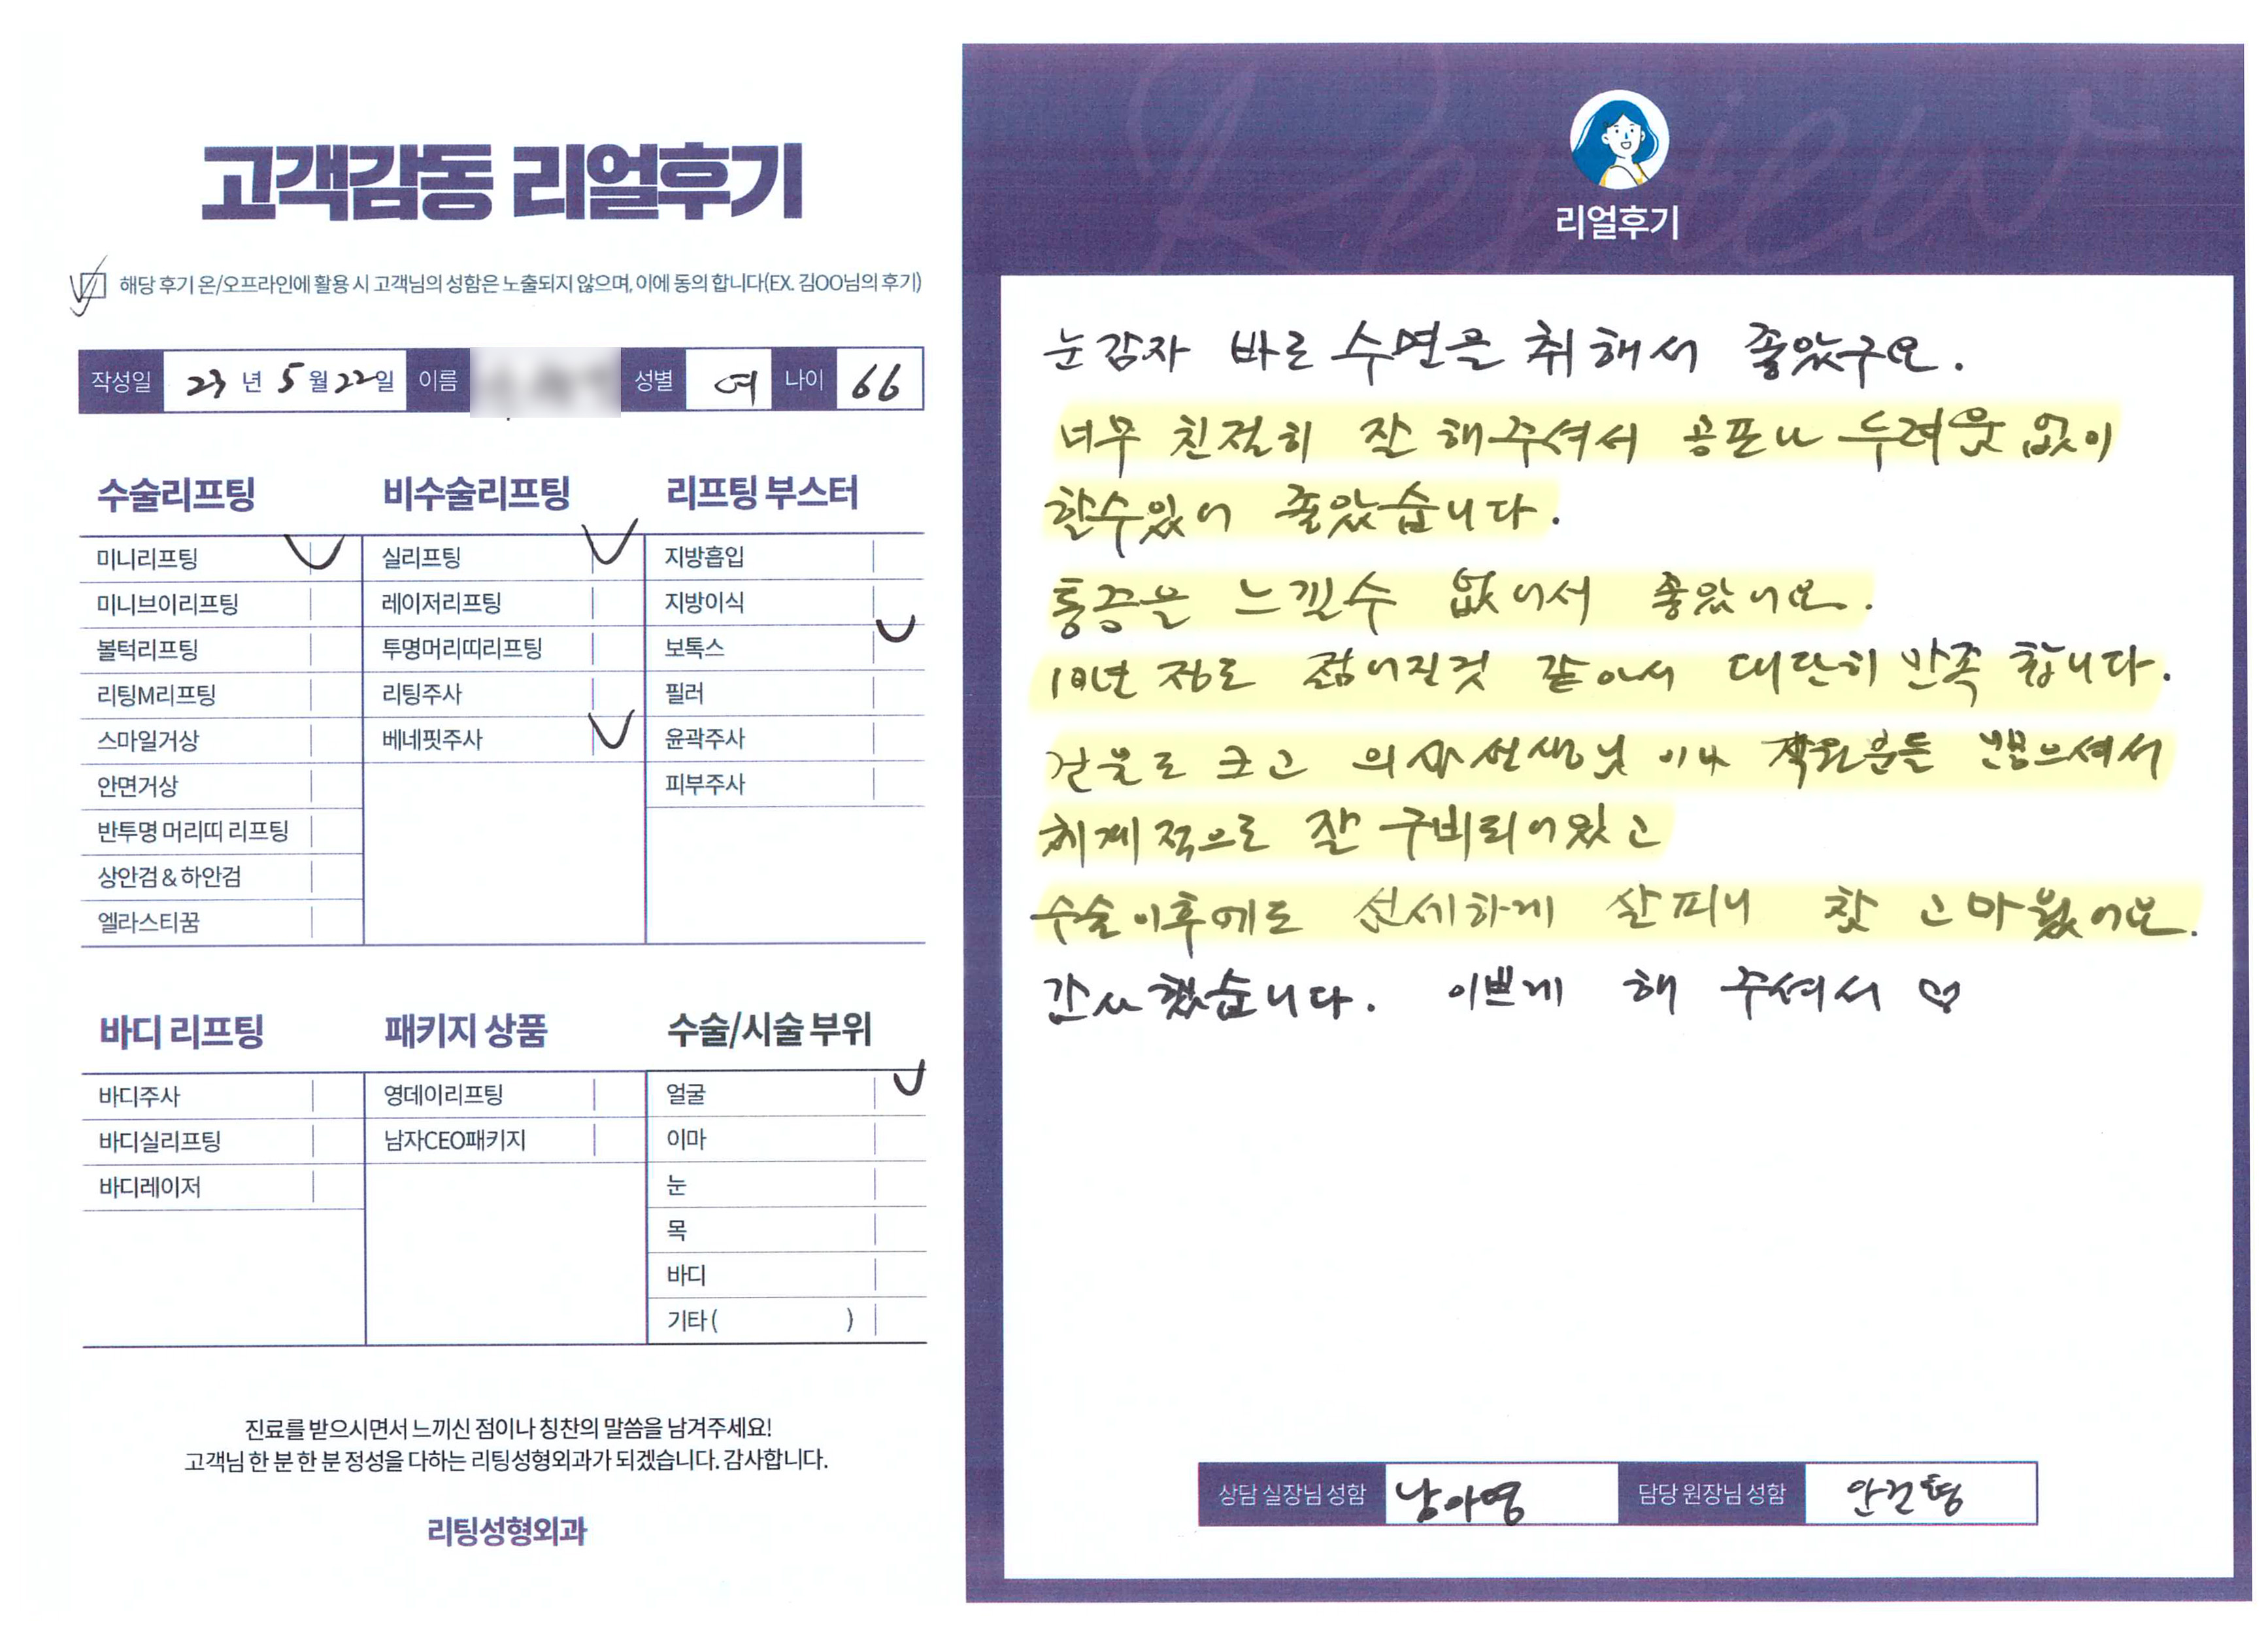 고객감동 리얼후기
해당 후기 온/오프라인에 활용 시 고객님의 성함은 노출되지 않으며, 이에 동의 합니다(EX. 김OO님의 후기)
작성일 23년 5월 22일 이름 성별 여 나이 66
수술리프팅
미니리프팅
미니브이리프팅
볼턱리프팅
리팅M리프팅
스마일거상
안면거상
반투명 머리띠 리프팅
상안검 & 하안검
엘라스티꿈
비수술리프팅
실리프팅
레이저리프팅
투명머리띠리프팅
리팅주사
베네핏주사
리프팅 부스터
지방흡입
지방이식
보톡스
필러
윤곽주사
피부주사
바디 리프팅
바디주사
바디실리프팅
바디레이저
패키지 상품
영데이리프팅
남자CEO패키지
수술/시술 부위
얼굴
이마
눈
목
바디
기타( )
진료를 받으시면서 느끼신 점이나 칭찬의 말씀을 남겨주세요!
고객님 한 분 한 분 정성을 다하는 리팅성형외과가 되겠습니다. 감사합니다.
리팅성형외과
Review
리얼후기
눈감자 바로 수면을 취해서 좋았구요.
너무 친절히 잘 해주셔서 공포나 두려움 없이
할수있어 좋았습니다.
통증을 느낄수 없어서 좋았어요.
10년 정도 젊어진것 같아서 대단히 만족 합니다.
건물도 크고 의사선생님 이나 직원분들 많으셔서
체계적으로 잘 구비되어있고
수술이후에도 섬세하게 살피니 참 고마웠어요.
감사했습니다. 이쁘게 해 주셔서 ♡
상담 실장님 성함 남아영 담당 원장님 성함 안건형